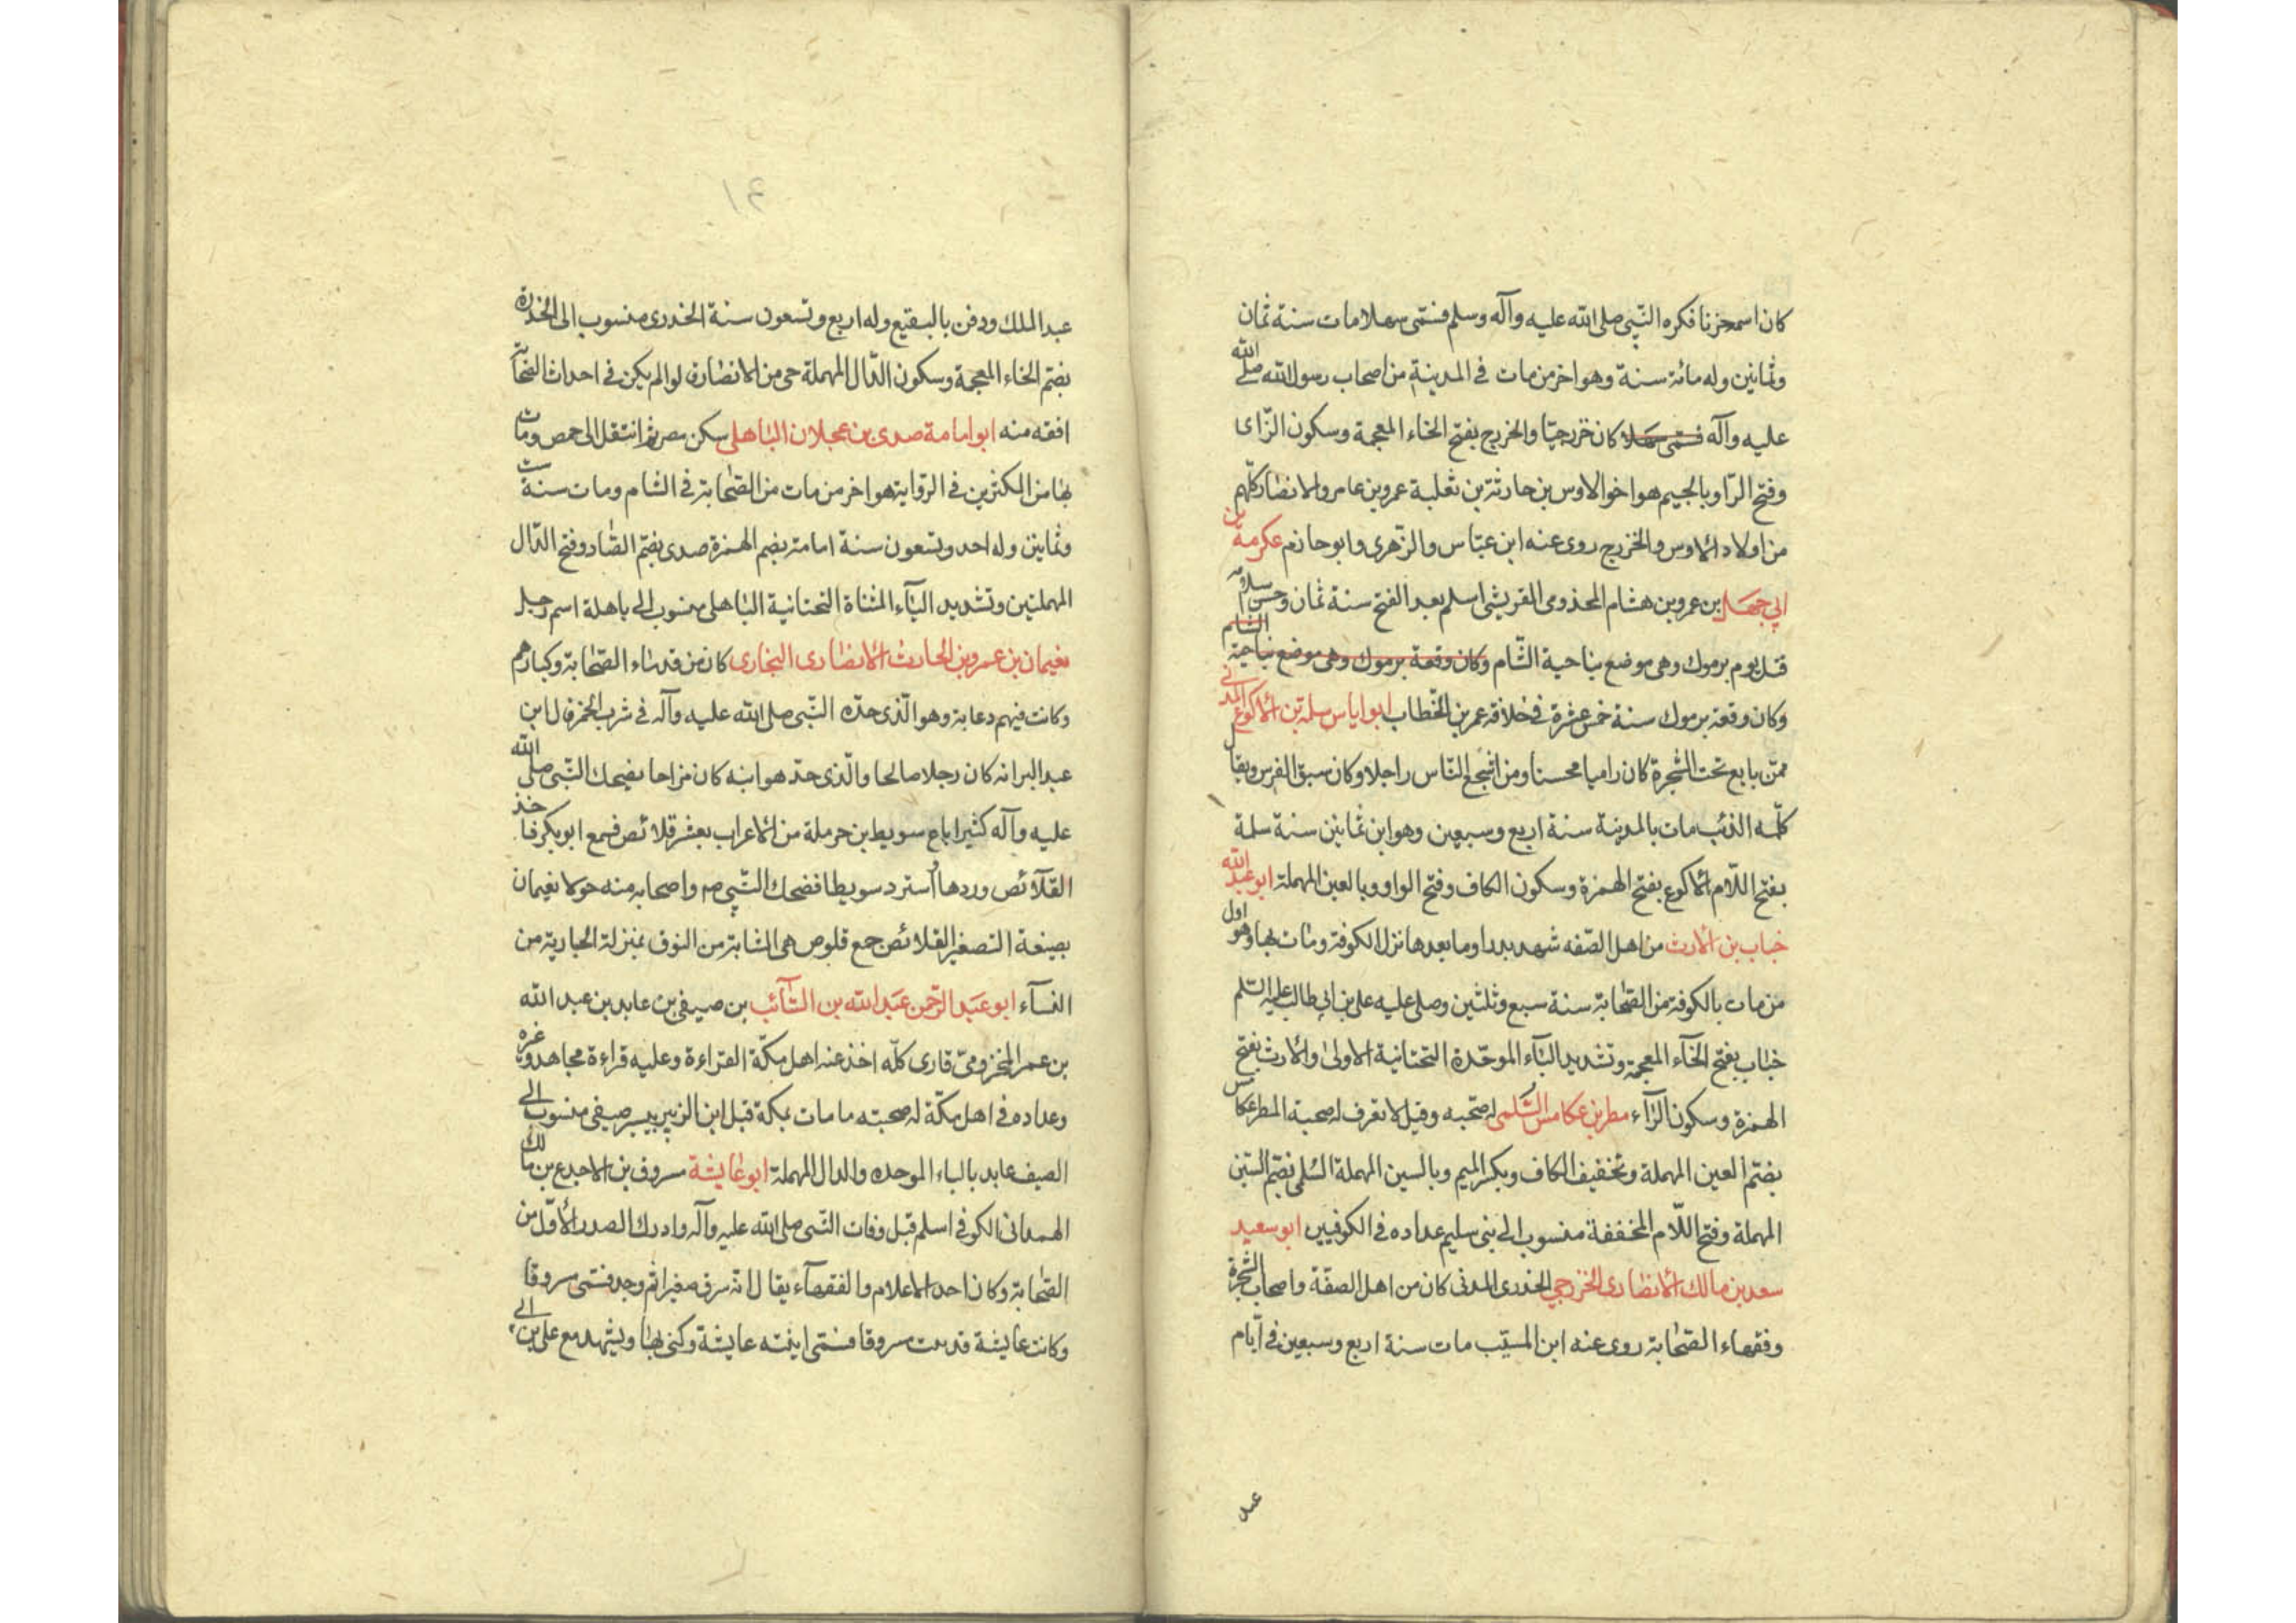 كان اسمه حزنا فكره النّبي صلى الله عليه وآله وسلم فسمّى سهلا مات سنة ثمان
وثمانين وله مائة سنة وهو اخر من مات فى المدينة من اصحاب رسول الله صلى الله
عليه وآله فسمّى سهلا كان خزرجيّا والخزرج بفتح الخاء المعجمة وسكون الزّاى
وفتح الرّا وبالجيم هو اخو الاوس بن حارثة بن ثعلبة عمرو بن عامر والانصار كلّهم
من اولاد الاوس والخزرج روى عنه ابن عبّاس والزّهرى وابو حازم عكرمة بن
ابي جهل بن عمرو بن هشام المخذومى القريشى اسلم بعد الفتح سنة ثمان وحسن اسلامه
قتل يوم يرموك وهى موضع بناحية الشّام وكان وقعة يرموك وهى موضع بناحية الشام
وكان وقعة يرموك سنة خمس عشرة فى خلافة عمر بن الخطاب ابو اياس سلمة بن الاكوع المدنى
ممّن بايع تحت الشّجرة كان راميا محسنا ومن اشجع النّاس راجلا وكان سبق الفرس ويقال
كلّمه الذئب مات بالمدينة سنة اربع وسبعين وهو ابن ثمانين سنة سلمة
بفتح اللّام الاكوع بفتح الهمزة وسكون الكاف وفتح الواو وبالعين المهملة ابو عبد الله
خباب بن الارث من اهل الصّفه شهد بدرا وما بعدها نزل الكوفة ومات بها وهو اول
من مات بالكوفة من الصّحابة سنة سبع وثلثين وصلى عليه على بن ابى طالب عليه السّلم
خبّاب بفتح الخآء المعجمة وتشديد البآء الموحّدة التحتانية الاولى والارث بفتح
الهمزة وسكون الرّآء مطر بن عكامس السّلمى له صحبه وقيل لا نعرف له صحبة المطر عكامس
بضمّ العين المهملة وتخفيف الكاف وبكسر الميم وبالسين المهملة السّلمى بضمّ السّين
المهملة وفتح اللّام المخففة منسوب الى بنى سليم عداده فى الكوفيين ابو سعيد
سعد بن مالك الانصارى الخزرجي الخدرى المدنى كان من اهل الصفّة واصحاب الشّجرة
وفقهاء الصّحابة روى عنه ابن المسيّب مات سنة اربع وسبعين فى ايّام
عبد
١٤
عبد الملك ودفن بالبقيع وله اربع وتسعون سنة الخدرى منسوب الى الخدرة
بضمّ الخاء المعجمة وسكون الدّال المهملة حى من الانصار لوا لم يكن فى احداث الصّحابة
افقه منه ابو امامة صدى بن عجلان الباهلى سكن مصر ثم انتقل الى حمص ومات
بها من المكثرين فى الرّواية هو اخر من مات من الصّحابة فى الشام ومات سنة ست
وثمانين وله احد وتسعون سنة امامة بضم الهمزة صدى بضمّ الصّاد وفتح الدّال
المهملتين وتشديد اليآء المثناة التحتانية الباهلى منسوب الى باهلة اسم رجل
نعيمان بن عمرو بن الحارث الانصارى النجارى كان من قدماء الصّحابة وكبارهم
وكانت فيهم دعابة وهو الّذى حدّه النّبى صلى الله عليه وآله فى شرب الخمر قال ابن
عبد البر انه كان رجلا صالحا والّذى حدّ هو ابنه كان مزاحا يضحك النّبى صلى الله
عليه وآله كثيرا باع سويط بن حرملة من الاعراب بعشر قلائص فسمع ابو بكر فاخذ
القلآئص وردها واسترد سويطا فضحك النّبي صم واصحابه منه حولا نعيمان
بصيغة التصغير القلائص جمع قلوص هى الشابة من النوق بمنزلة الجارية من
النسآء ابو عبد الرّحمن عبد الله بن السّآئب بن صيفى بن عابد بن عبد الله
بن عمر المخزومىّ قارى كلّه اخذ عنه اهل مكّة القراءة وعليه قراءة مجاهد وغيره
وعداده فى اهل مكّة له صحبته مامات بمكة قبل ابن الزبير بيسير صيفى منسوب الى
الصيف عابد بالباء الموحده والدال المهملة ابو عايشة مسروق بن الاجدع بن مالك
الهمدانى الكوفى اسلم قبل وفات النّبى صلى الله عليه وآله وادرك الصدر الاوّل من
الصّحابة وكان احد الاعلام والفقهآء يقال انه سرق صغيرا ثم وجد فسمّى مسروقا
وكانت عايشة قد مسروقا فسمّى ابنته عايشة وكنى بها ويشهد مع على بن ابى